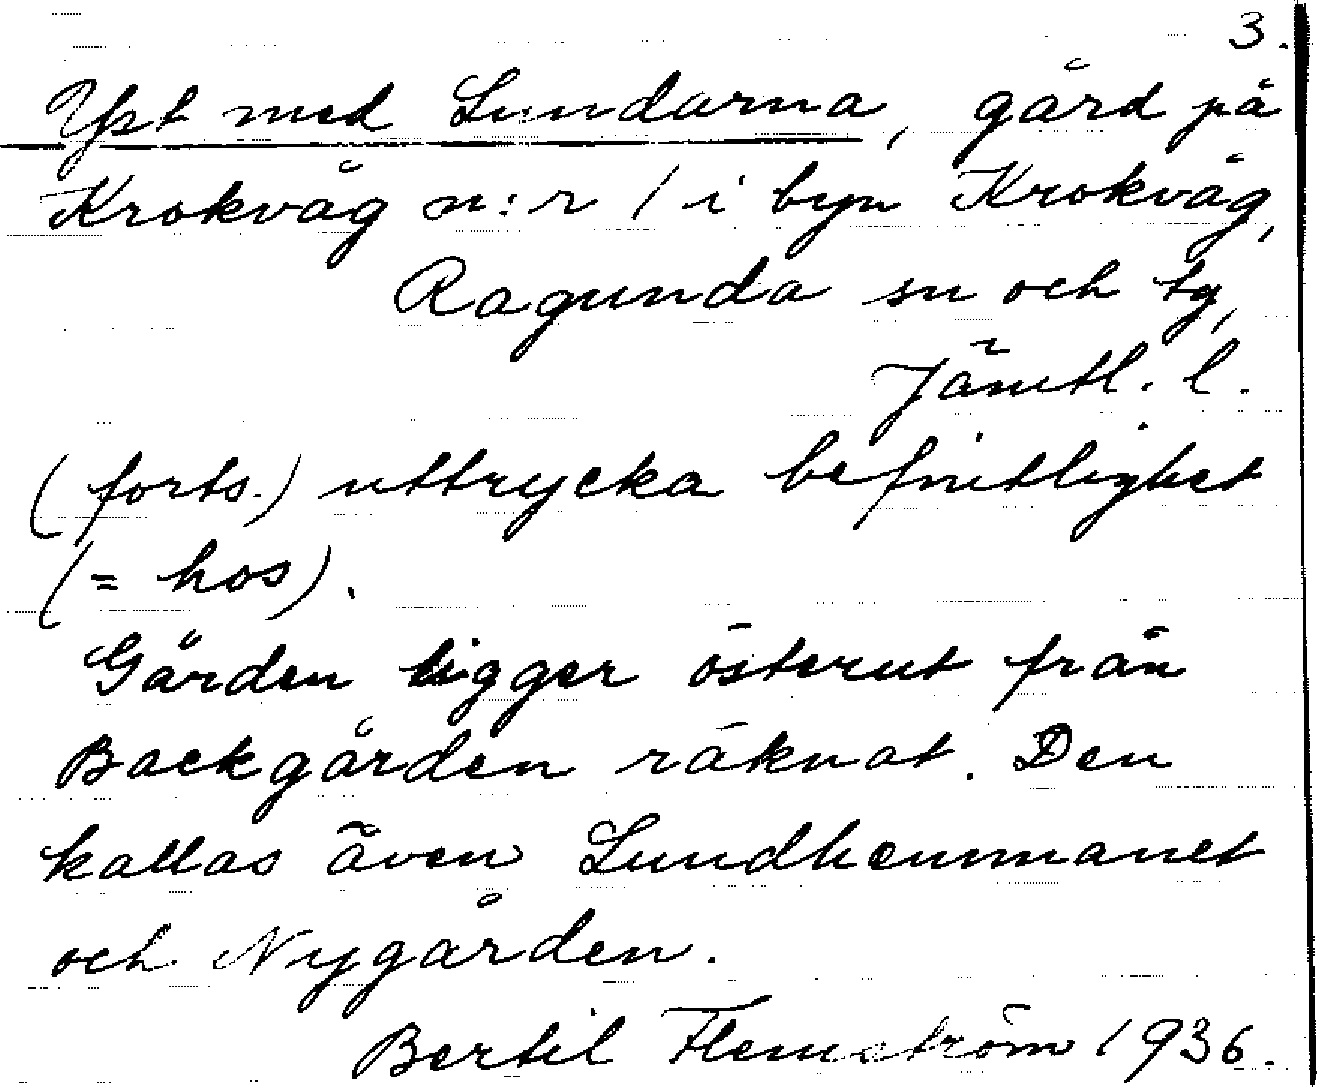 3.
Yst med Lundarna, gård på
Krokvåg n:r 1 i byn Krokvåg,
Ragunda sn och tg,
Jämtl. l.
(forts.) uttrycka befintlighet
(= hos).
Gården ligger österut från
Backgården räknat. Den
kallas även Lundhemmanet
och Nygården.
Bertil Flemström 1936.